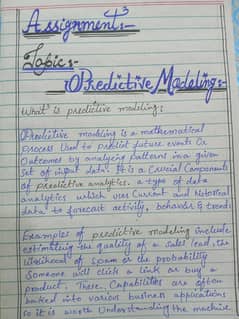 Assignment:- 3
Topic:-
Predictive Modeling:-
What is predictive modeling:
Predictive modeling is a mathematical
process used to predict future events or
outcomes by analyzing patterns in a given
set of input data. It is a crucial components
of predictive analytics, a type of data
analytics which uses current and historical
data to forecast activity, behavior & trends
Examples of predictive modeling include
estimating the quality of a sales lead, the
likelihood of spam or the probability
someone will click a link or buy a
product. These capabilities are often
baked into various business applications
so it is worth understanding the machine